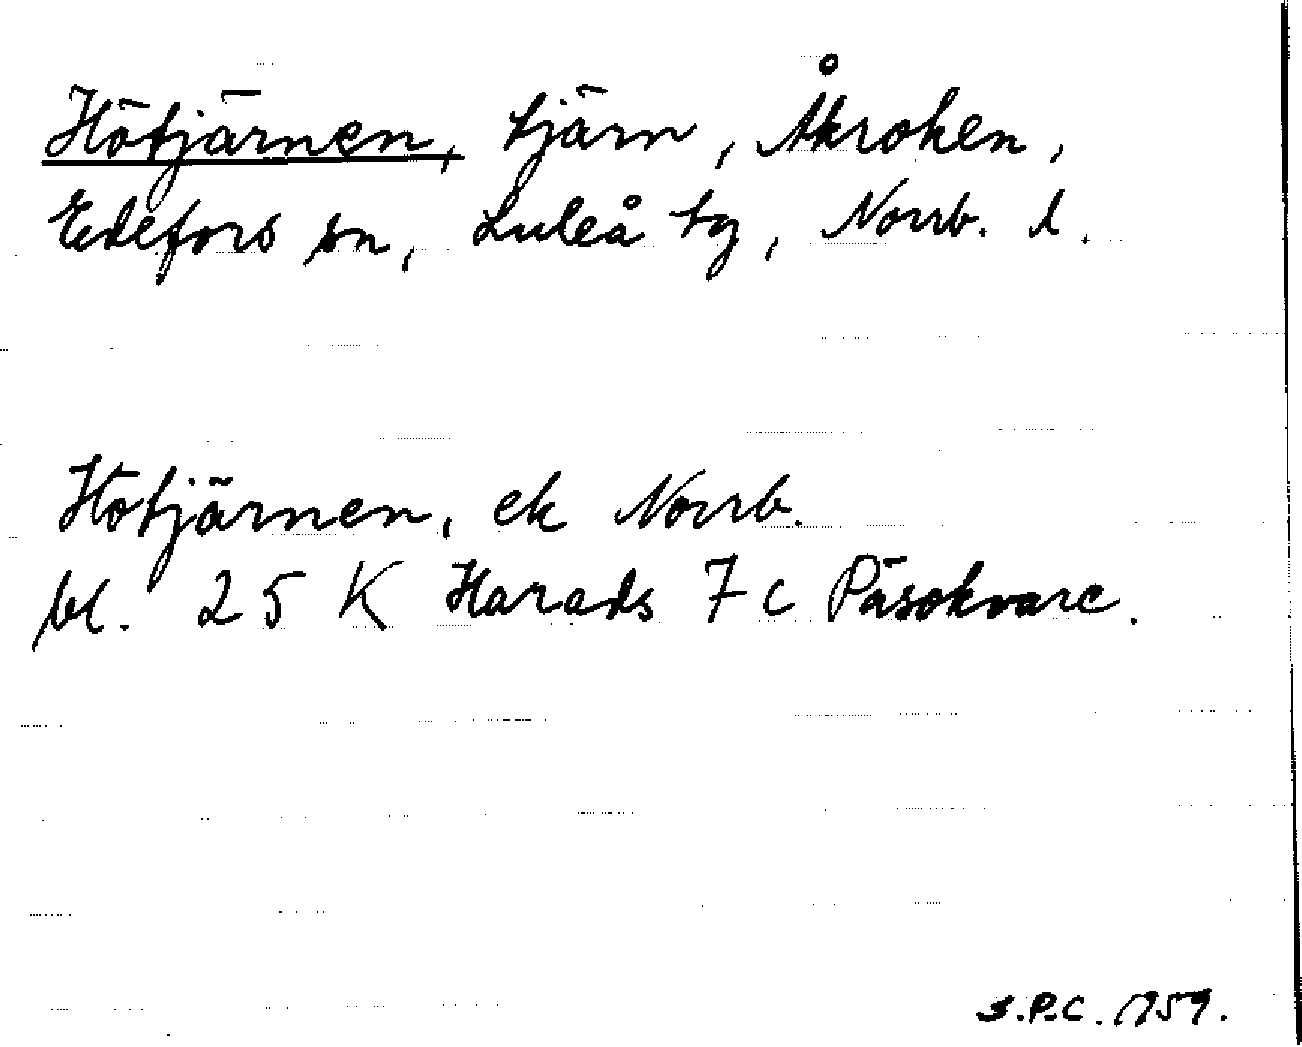 Hötjärnen, tjärn, Åkroken,
Edefors sn, Luleå tg, Norrb. l.
Hötjärnen, ek Norrb.
bl. 25 K Harads 7 c Päsokvare.
S.P.C. 1959.